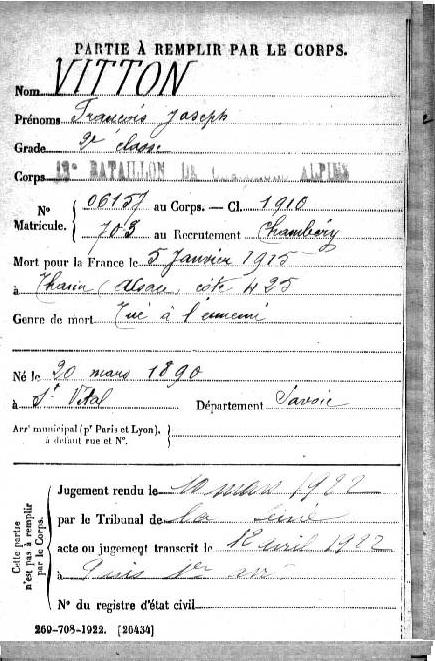 PARTIE À REMPLIR PAR LE CORPS.
Nom VITTON
Prénoms François Joseph
Grade 2e classe
Corps BATAILLON DE ALPINS
N° Matricule. { 06157 au Corps. — Cl. 1910
703 au Recrutement Chambéry
Mort pour la France le 5 Janvier 1915
à Thann (Alsace) côte 425
Genre de mort Tué à l'ennemi
Né le 20 mars 1890
à St Vital Département Savoie
Arrt municipal (pr Paris et Lyon), à défaut rue et N°. {
Cette partie n'est pas à remplir par le Corps. {
Jugement rendu le 10 mars 1922
par le Tribunal de la Seine
acte ou jugement transcrit le 12 avril 1922
à Paris
N° du registre d'état civil
269-708-1922. [26434]